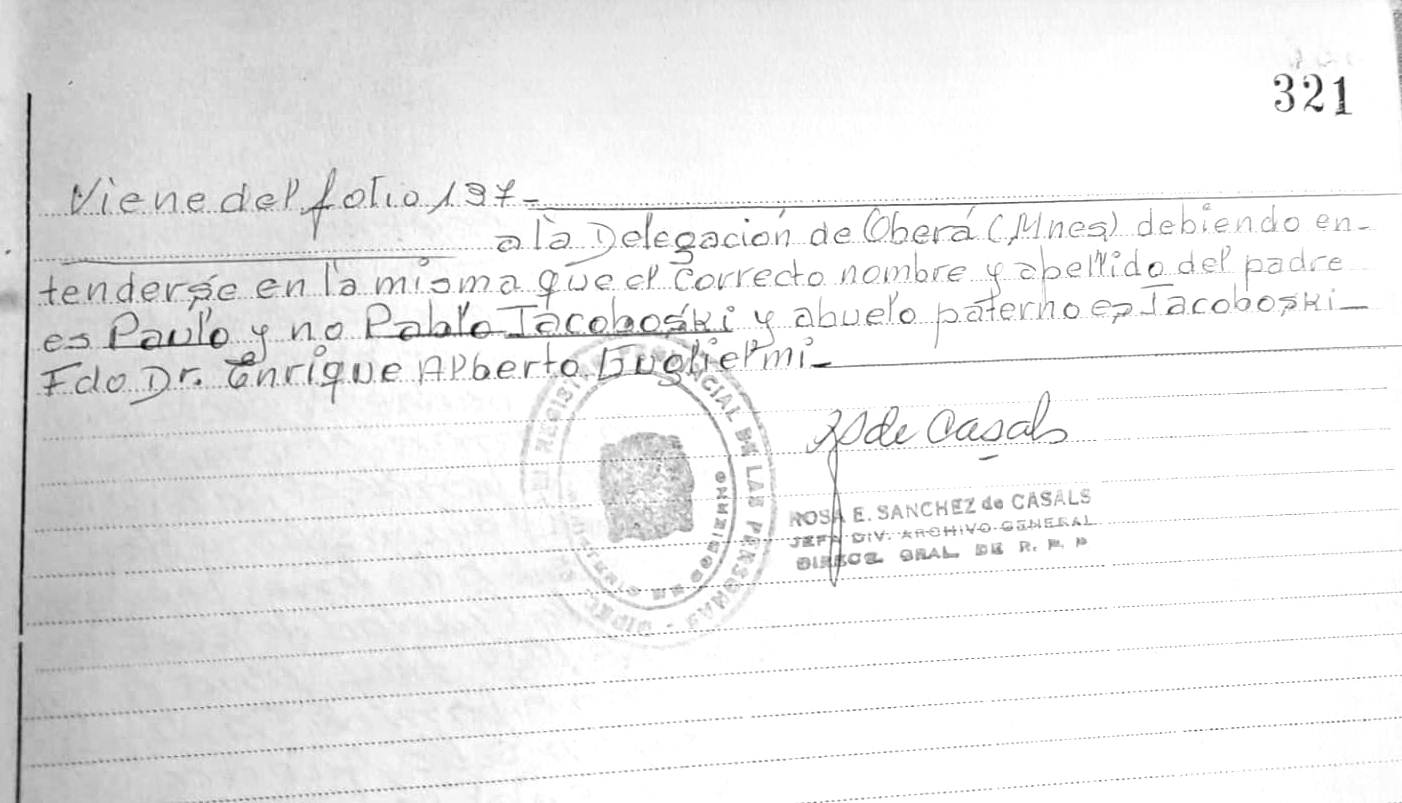 321
Viene del folio 197-
a la Delegación de Oberá (Mnes) debiendo en-
tenderse en la misma que el correcto nombre y apellido del padre
es Paulo y no Pablo Jacoboski y abuelo paterno es Jacoboski-
Fdo Dr. Enrique Alberto Guglielmi-
de Casals
ROSA E. SANCHEZ de CASALS
JEFA DIV. ARCHIVO GENERAL
DIRECC. GRAL. DE R. P. P
DE LAS PERSONAS